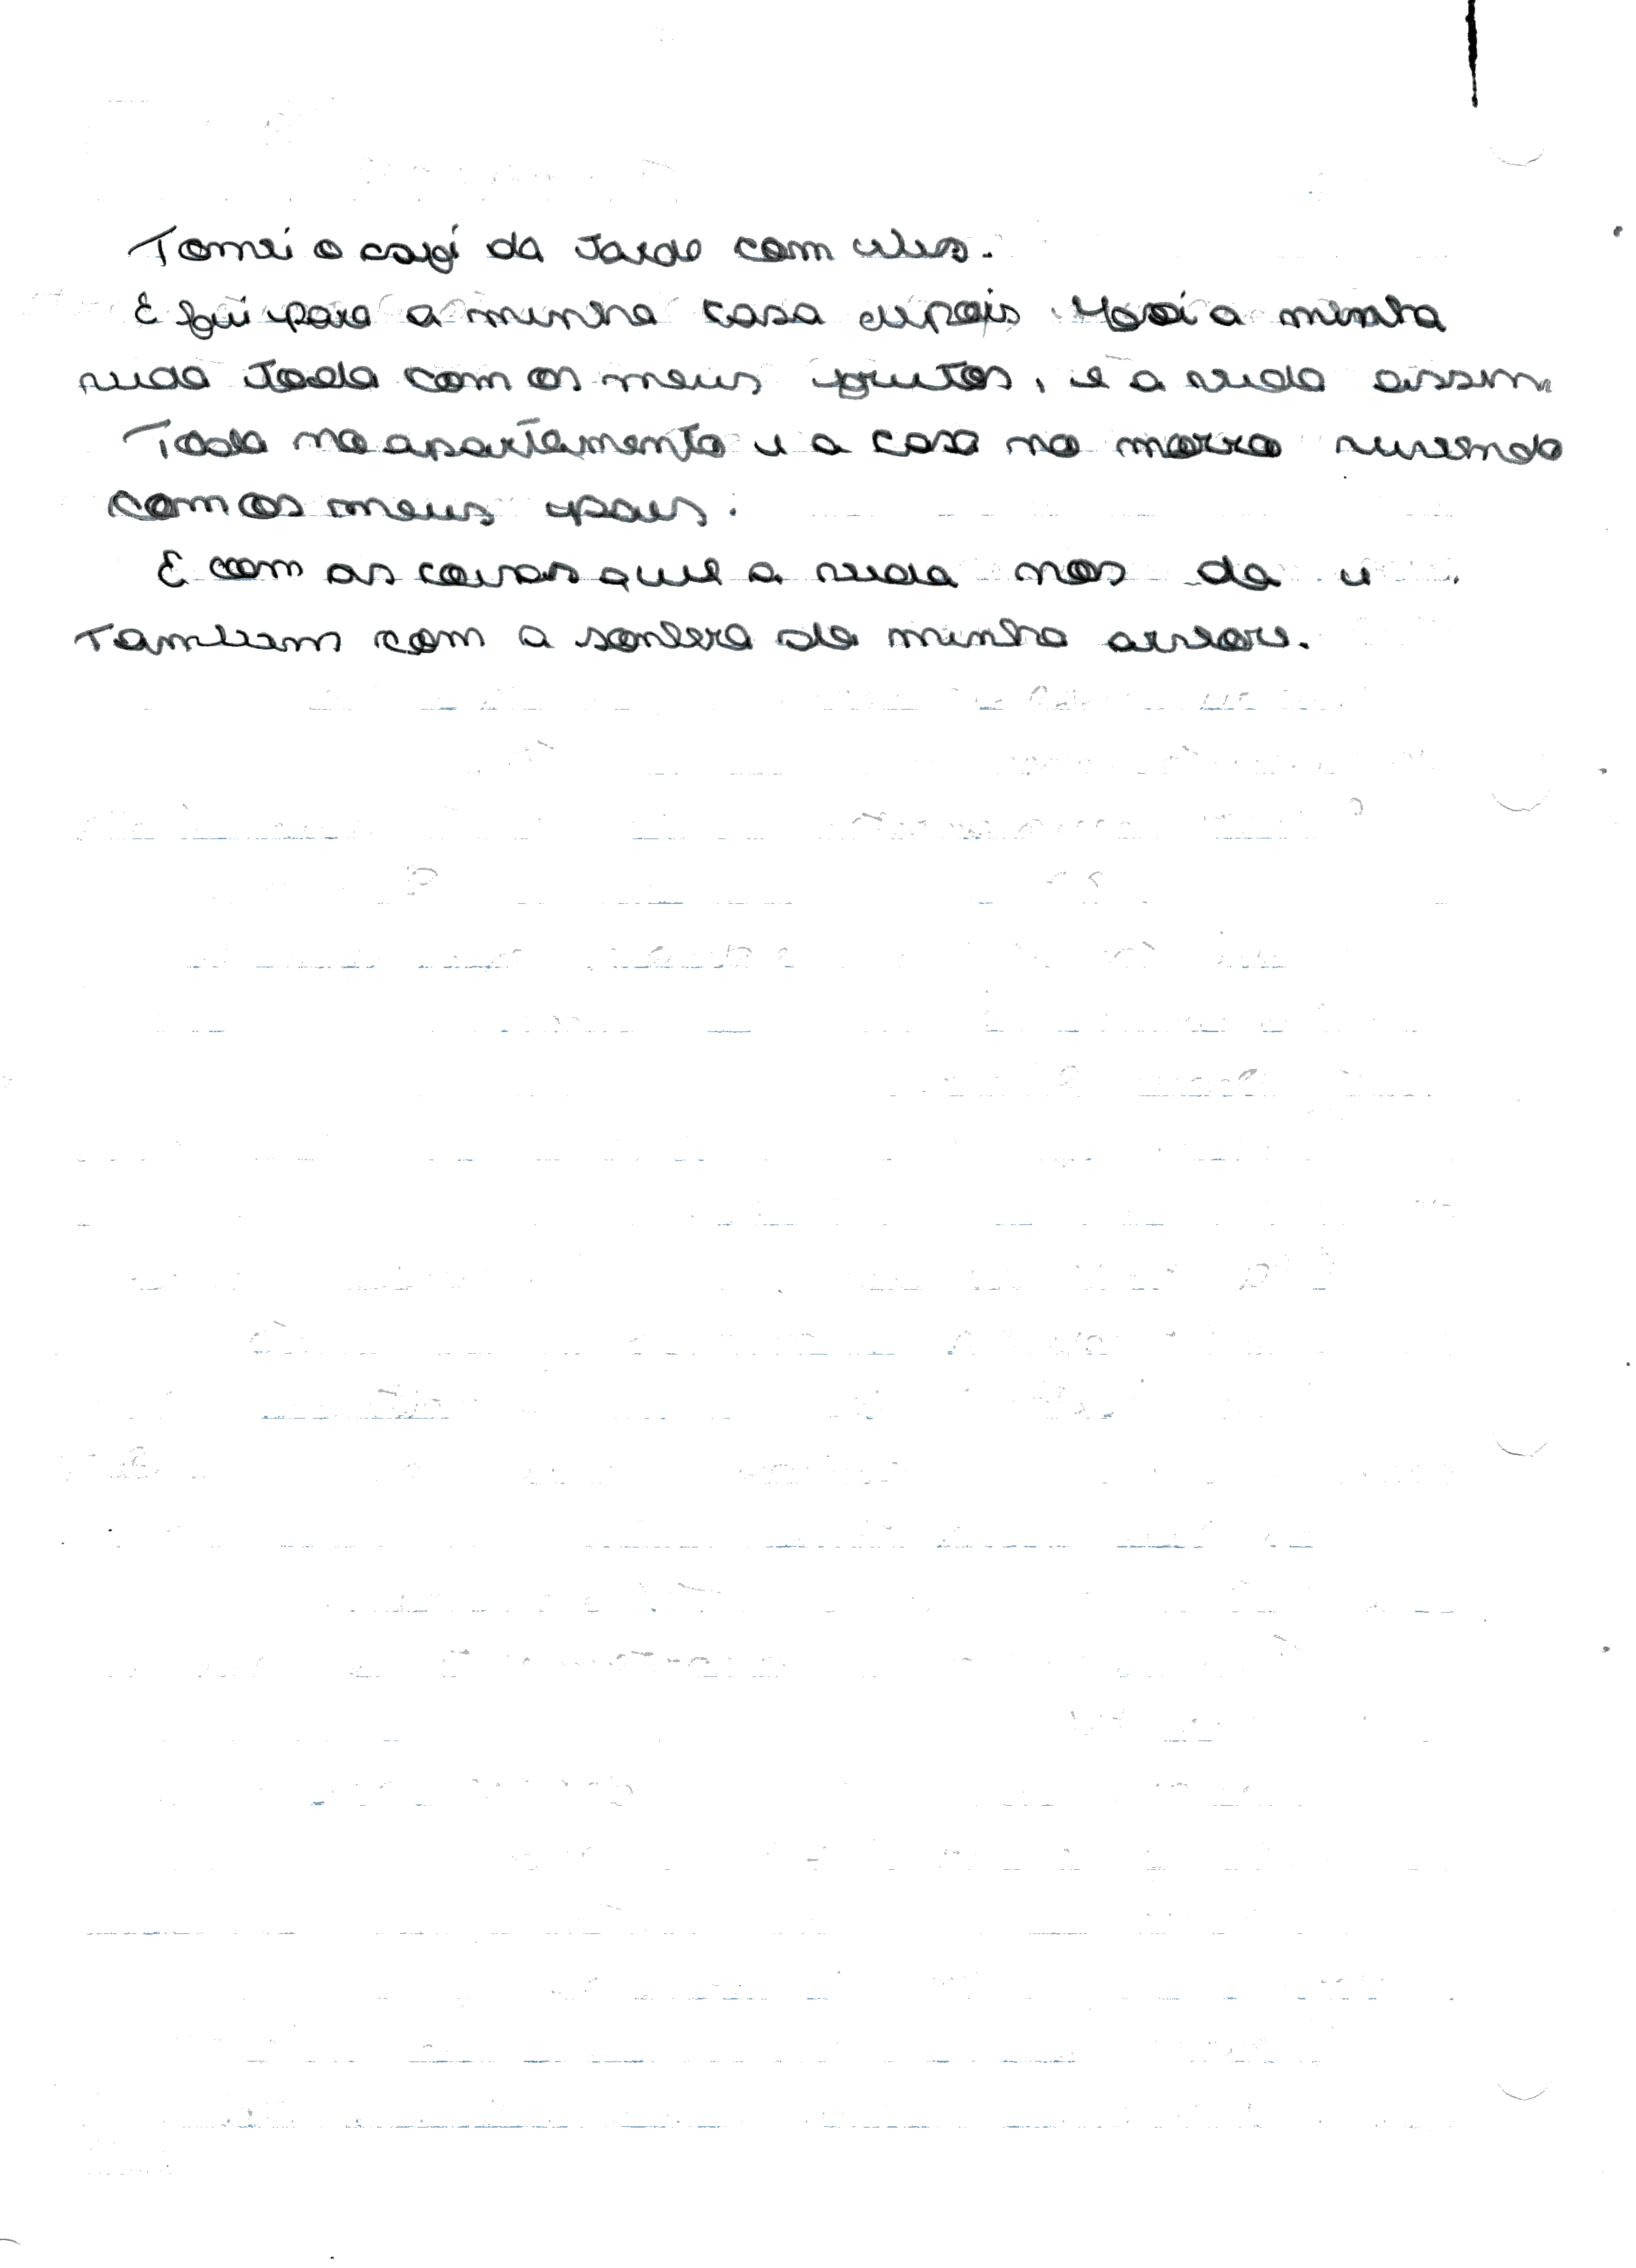 Tomei o café da tarde com eles.
E fui para a minha casa depois. Vivi a minha
vida toda com os meus frutos, e a vida assim
Toda no apartamento e a casa no morro vivendo
com os meus pais.
E com as coisas que a vida nos da e
Tambem com a sombra da minha arvore.